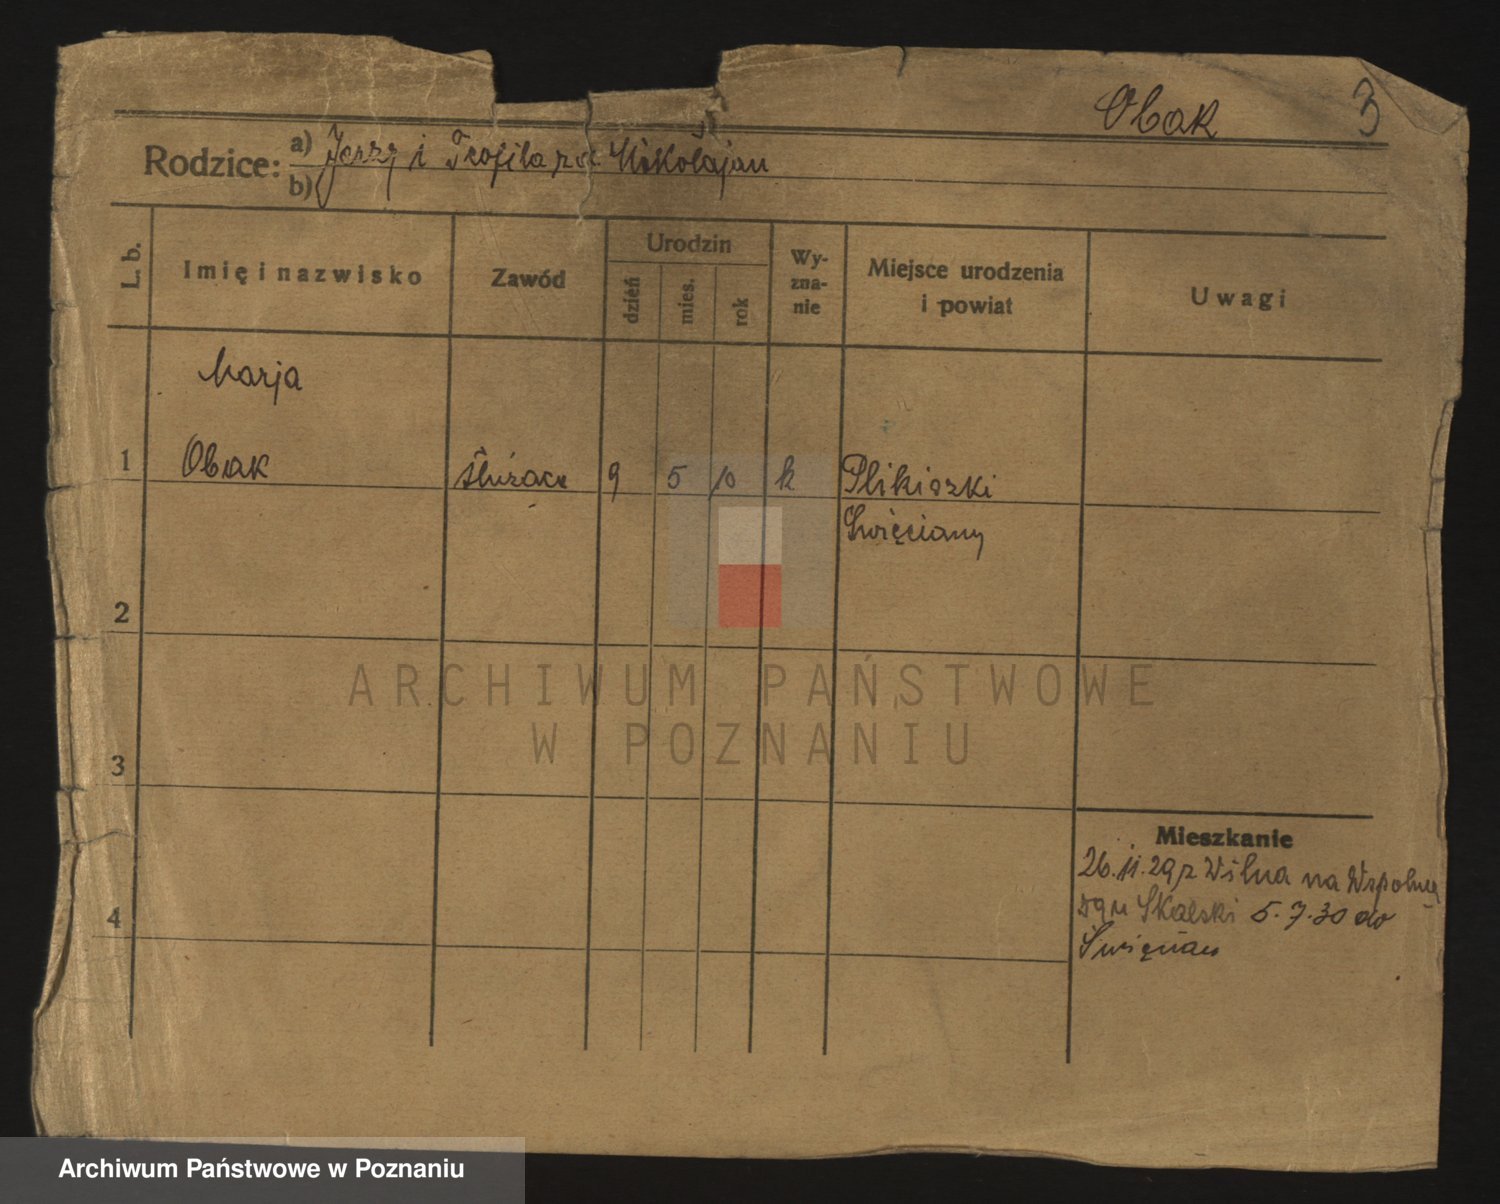 Obak 3
Rodzice: a) Jerzy i Teofila
b)
L. b.
Imię i nazwisko
Zawód
Urodzin
dzień
mies.
rok
Wy-
zna-
nie
Miejsce urodzenia
i powiat
Uwagi
Marja
1 Obak służąca 9 5 10 k Plikiszki
Święciany
2
3
4
Mieszkanie
26.11.29 z Wilna na Wspólną
Skalski 5.7.30 do
Święcian
ARCHIWUM PAŃSTWOWE
W POZNANIU
Archiwum Państwowe w Poznaniu